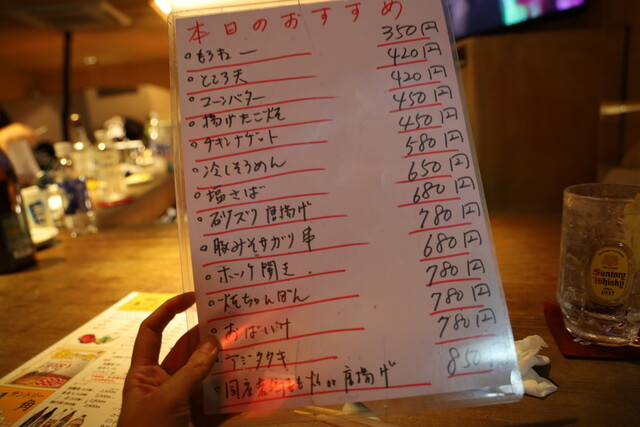 本日のおすすめ
もろきゅー 350円
ところ天 420円
コーンバター 420円
揚げたこ焼 450円
チキンナゲット 450円
冷しそうめん 580円
塩さば 650円
砂ズリ唐揚げ 680円
豚みそサガリ串 780円
ホッケ開き 680円
焼ちゃんぽん 780円
おばいけ 780円
アジタタキ 780円
国産若鶏もも 焼 or 唐揚げ 850
SUNTORY
WHISKY
1937